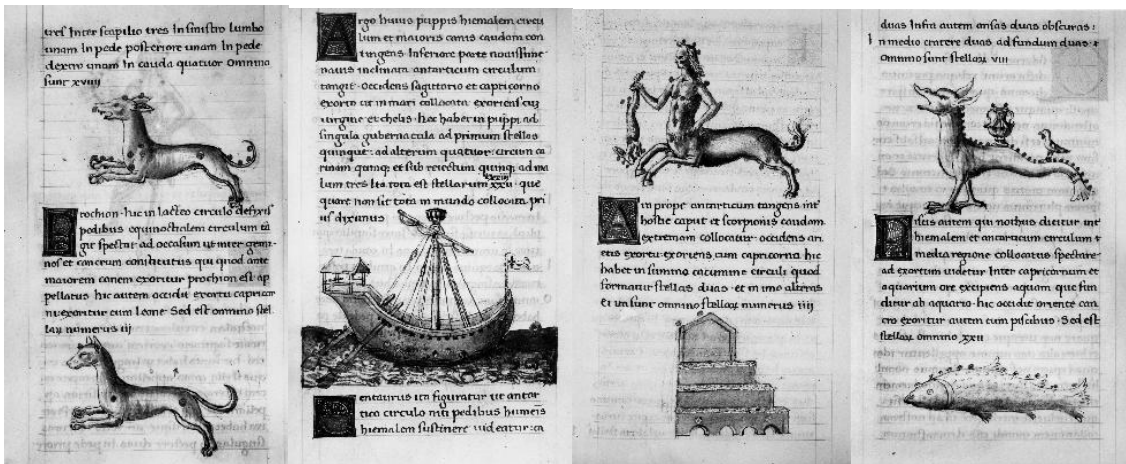 tres Inter scapilio tres In sinistro lumbo
unam In pede posteriore unam In pede
dextro unam In cauda quatuor Omnino
sunt xviiii
Prochion · hic in lacteo circulo defixis
pedibus equinoctialem circulum tā
git spectat ad occasum ut inter gemi
nos et cancrum constitutus qui quod ante
maiorem canem exoritur prochion est ap
pellatus hic autem occidit exortu capricor
ni exoritur cum leone · Sed est omnino stel
laꝝ numerus iij
Argo huius puppis hiemalem circu
lum et maioris canis caudam con
tingens Inferiore parte nouissime
nauis inclinata antarticum circulum
tangit · Occidens sagittorio et capricorno
exorto ut in mari collocata exoriens cū
uirgine et chelis · hec habet in puppi ad
singula gubernacula ad primum stellas
quinque · ad alterum quatuor · circum ca
rinam quinq; et sub reiectum quinq; ad ma
lum tres Ita tota est stellarum xxii · que
quare non sit tota in mundo collocata pri
us diximus
Centaurus ita figuratur ut antar
tico circulo niti pedibus humeris
hiemalem sustinere uideatur · ca
Ara prope antarticum tangens int
hostie caput et scorpionis caudam
extremam collocatur · occidens ari
etis exortu exoriens cum capricorno hic
habet in summo cacumine circuli quod
formatur stellas duas · et in imo alteras
et un sunt omnino stellaꝝ numerus iiij
duas Infra autem ansas duas obscuras ·
In medio cratere duas ad fundum duas ·
Omnino sunt stellaꝝ viii
Piscis autem qui nothus dicitur int
hiemalem et antarticum circulum
media regione collocatus spectare
ad exortum uidetur Inter capricornum et
aquarium ore excipiens aquam que fun
ditur ab aquario · hic occidit oriente can
cro exoritur autem cum piscibus · Sed est
stellaꝝ omnino xxii